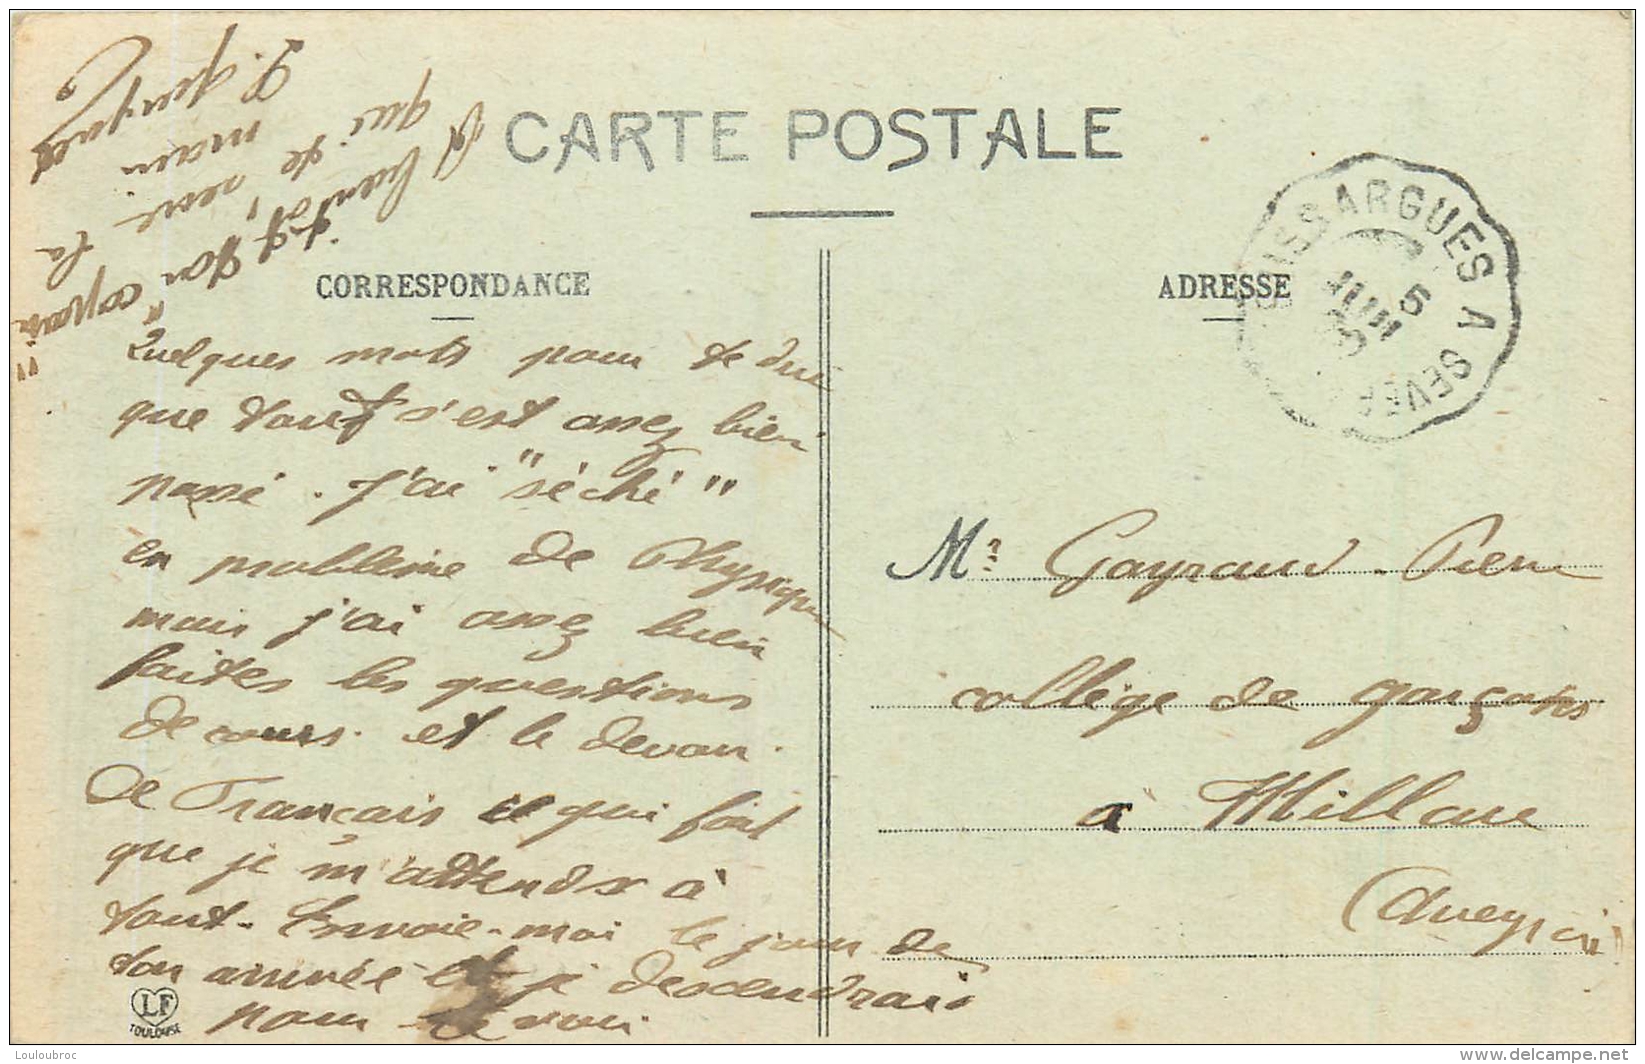 CARTE POSTALE
CORRESPONDANCE
Quelques mots pour te dire
que tout s'est assez bien
passé. J'ai "séché"
en problème de Physique
mais j'ai assez bien
faites les questions
de cours. et le devoir.
de Français ce qui fait
que je m'attends à
tout. Envoie-moi le jour de
ton arrivée et je descendrais
pour te voir
A bientôt,
ton "copain"
qui te serre la
main
ADRESSE
Mr Gayraud Pierre
collège de garçons
à Millau
(Aveyron)
ISSARGUES A SEVER
5
JUIN
LF
TOULOUSE
Louloubroc
www.delcampe.net